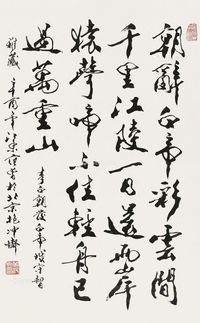 朝辭白帝彩雲間
千里江陵一日還兩岸
猿聲啼不住輕舟已
過萬重山
李白朝發白帝城
雅藏
辛酉年
於北京抱沖齋